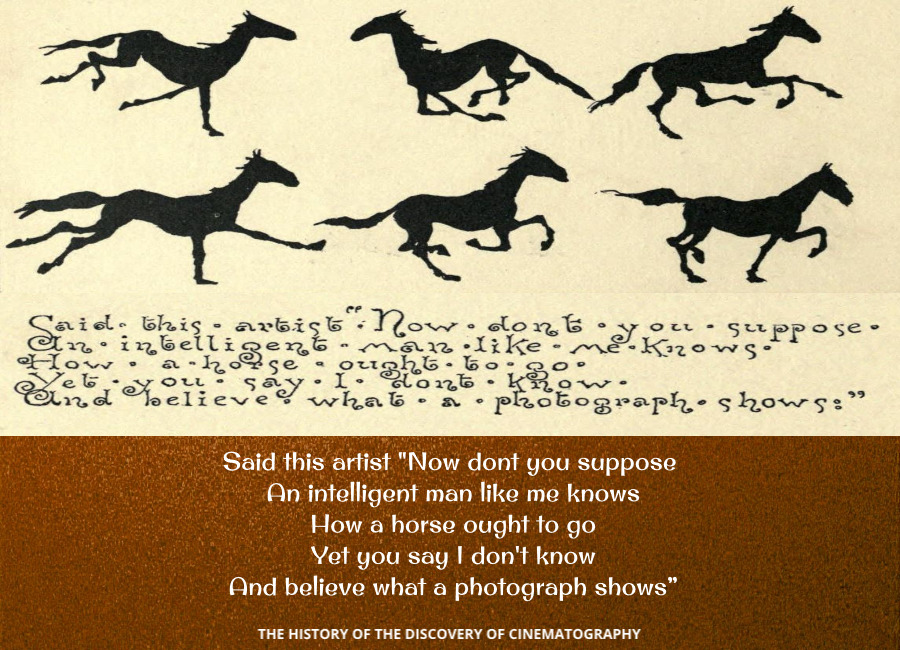 Said · this · artist “· Now · dont · you · suppose ·
An · intelligent · man · like · me · knows ·
How · a · horse · ought · to · go ·
Yet · you · say · I · dont · know ·
And believe · what · a · photograph · shows:”
Said this artist "Now dont you suppose
An intelligent man like me knows
How a horse ought to go
Yet you say I don't know
And believe what a photograph shows”
THE HISTORY OF THE DISCOVERY OF CINEMATOGRAPHY